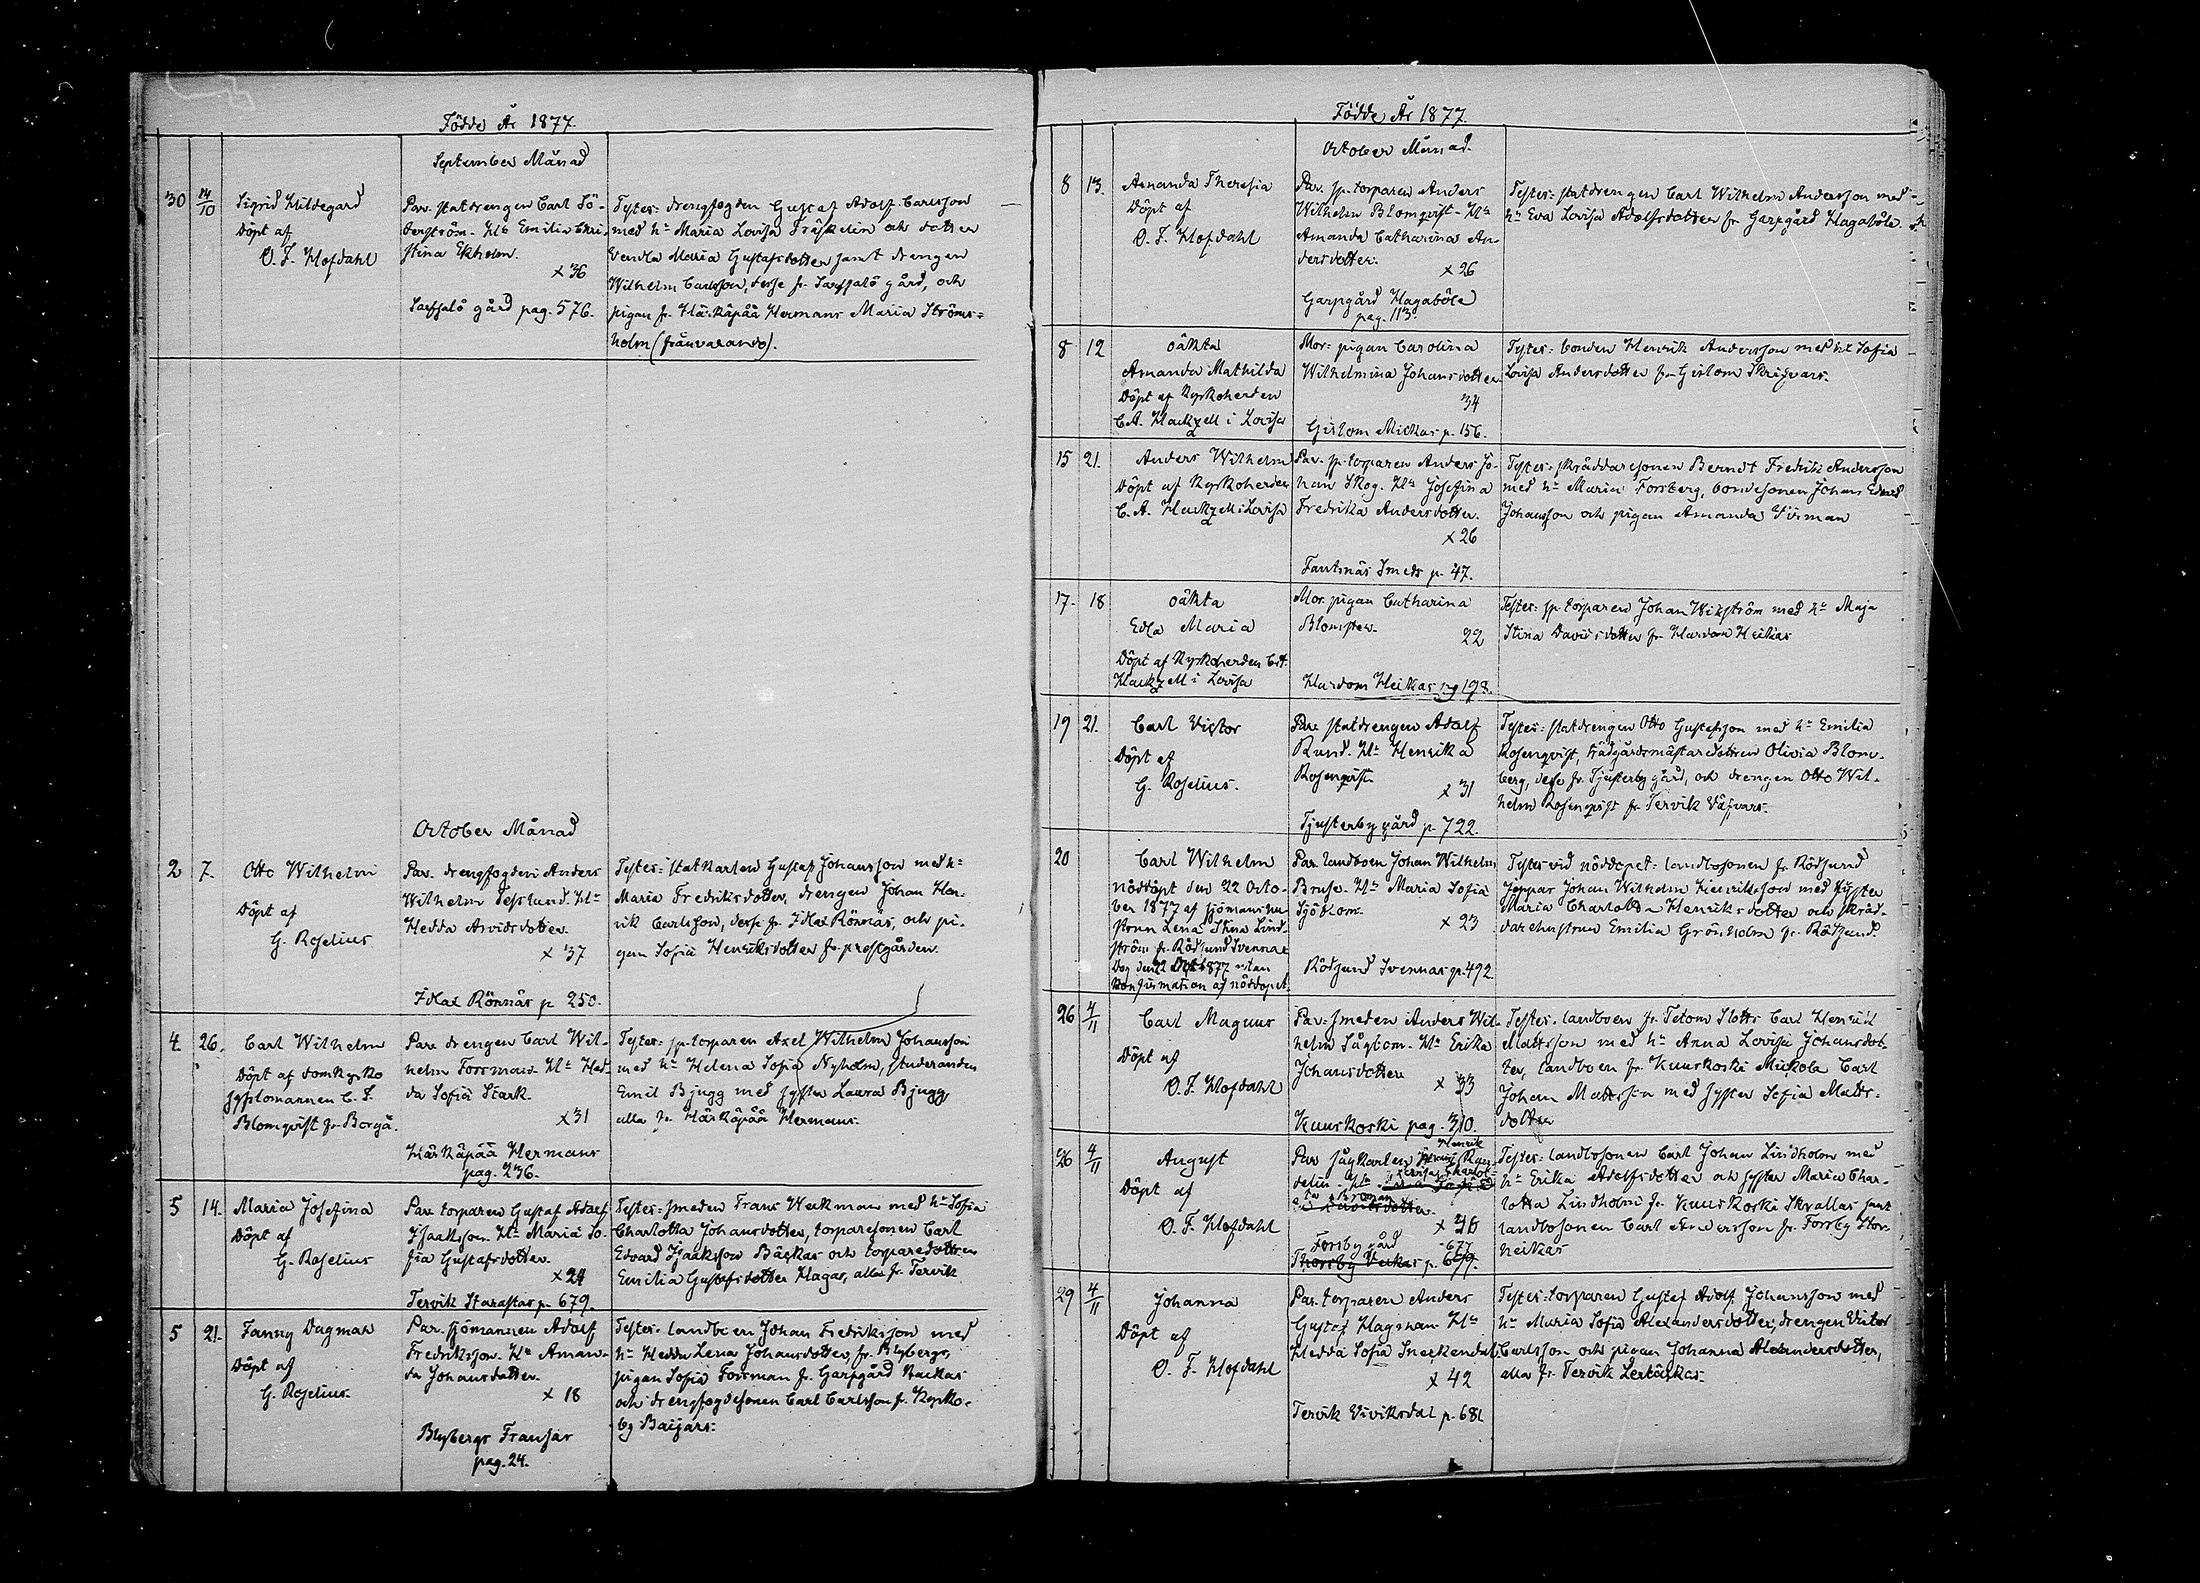 Födde År 1877.
September Månad
30 14/10 Sigrid Hildegard
Döpt af
O. F. Hofdahl
Par. statdrengen Carl Sö-
derström. H:u Emilia Chri-
stina Ekholm.
x 36
Sarfsalö gård pag. 576.
Tester: drengfogden Gustaf Adolf Carlsson
med h:u Maria Lovisa Träskelin och dotter
Vendla Maria Gustafsdotter samt drengen
Wilhelm Carlsson, desse fr. Sarfsalö gård, och
pigan fr. Härkäpää Hermans Maria Ströms-
holm (frånvarande).
October Månad
2 7. Otto Wilhelm
Döpt af
G. Roselius
Par. drengfogden Anders
Wilhelm Teslund. H:u
Hedda Arvidsdotter.
x 37
Idlax Rönnäs p. 250.
Tester: statkarlen Gustaf Johansson med h:u
Maria Fredriksdotter, drengen Johan Hen-
rik Carlsson, desse fr. Idlax Rönnäs, och pi-
gan Sofia Henriksdotter fr. prestgården.
4 26. Carl Wilhelm
Döpt af domkyrko
sysslomannen C. F.
Blomqvist fr. Borgå.
Par. drengen Carl Wil-
helm Forsman. H:u Hed-
da Sofia Stark.
x 31
Härkäpää Hermans
pag. 236.
Tester: sp. torparen Axel Wilhelm Johansson
med h:u Helena Sofia Nyholm, studeranden
Emil Bjugg med syster Laura Bjugg,
alla fr. Härkäpää Hermans.
5 14. Maria Josefina
Döpt af
G. Roselius
Par. torparen Gustaf Adolf
Isaksson. H:u Maria So-
fia Gustafsdotter.
x 24
Tervik Starastas p. 679.
Tester: smeden Frans Weckman med h:u Sofia
Charlotta Johansdotter, torparesonen Carl
Edvard Isaksson Bäckas och torparedottren
Emilia Gustafsdotter Hagas, alla fr. Tervik
5 21. Fanny Dagmar
Döpt af
G. Roselius.
Par. sjömannen Adolf
Fredriksson. H:u Aman-
da Johansdotter.
x 18
Blybergs Fransas
pag. 24.
Tester: landboen Johan Fredriksson med
h:u Hedda Lena Johansdotter, fr. Blybergs,
pigan Sofia Forsman fr. Garpgård Backas
och drengfogdesonen Carl Carlsson fr. Kyrko-
by Baijars.
Födde År 1877.
October Månad.
8 13. Amanda Theresia
Döpt af
O. F. Hofdahl
Par. sp. torparen Anders
Wilhelm Blomqvist. H:u
Amanda Catharina An-
dersdotter.
x 26
Garpgård Hagaböle
pag. 113.
Tester: statdrengen Carl Wilhelm Andersson med
h:u Eva Lovisa Adolfsdotter fr. Garpgård Hagaböle.
8 12 oäkta
Amanda Mathilda
Döpt af Kyrkoherden
C. A. Hackzell i Lovisa
Mor: pigan Carolina
Wilhelmina Johansdotter.
34
Gislom Mickas p. 156.
Tester: bonden Henrik Andersson med h:u Sofia
Lovisa Andersdotter fr. Gislom Skrifvars.
15 21. Anders Wilhelm
Döpt af Kyrkoherden
C. A. Hackzell i Lovisa
Par. sp. torparen Anders Jo-
han Skog. H:u Josefina
Fredrika Andersdotter.
x 26
Fantsnäs Smeds p. 47.
Tester: skräddaresonen Berndt Fredrik Andersson
med h:u Maria Forsberg, bondesonen Johan Edvard
Johansson och pigan Amanda
17. 18 oäkta
Edla Maria
Döpt af Kyrkoherden C. A.
Hackzell i Lovisa
Mor. pigan Catharina
Blomster.
22
Hardom Heikas pg 198.
Tester: sp. torparen Johan Wikström med h:u Maja
Stina Davidsdotter fr. Hardom Heikas
19 21. Carl Victor
Döpt af
G. Roselius.
Par. statdrengen Adolf
Rund. H:u Henrika
Rosenqvist.
x 31
Tjusterby gård p. 722.
Tester: statdrengen Otto Gustafsson med h:u Emilia
Rosenqvist, trädgårdsmästaredottren Olivia Blom-
berg, desse fr. Tjusterby gård, och drengen Otto Wil-
helm Rosenqvist fr. Tervik Väfvars.
20 Carl Wilhelm
nöddöpt den 22 Octo-
ber 1877 af sjömanshu-
strun Lena Stina Lind-
ström fr. Rödsund Svennas
Dog den 22 Oct. 1877 utan
Konfirmation af nöddopet.
Par. landboen Johan Wilhelm
Bruse. H:u Maria Sofia
Sjöblom.
x 23
Rödsund Svennas p. 492.
Tester vid nöddopet: landbosonen fr. Rödsund
Jöppas Johan Wilhelm Henriksson med syster
Maria Charlotta Henriksdotter och skräd-
darehustrun Emilia Grönholm fr. Rödsund.
26 4/11 Carl Magnus
Döpt af
O. F. Hofdahl
Par. smeden Anders Wil-
helm Sågbom. H:u Erika
Johansdotter
x 33
Kuuskoski pag. 310.
Tester. landboen fr. Tetom Slotts Carl Henrik
Mattsson med h:u Anna Lovisa Johansdot-
ter, landboen fr. Kuuskoski Mickola Carl
Johan Mattsson med syster Sofia Matts-
dotter
26 4/11 August
Döpt af
O. F. Hofdahl
Henrik
Par. sågkarlen
delin. H:u Lovisa Charlot-
ta
Davidsdotter.
x 46
Forsby gård 677.
Thorsby p. 659.
Tester: landbosonen Carl Johan Lindholm med
h:u Erika Adolfsdotter och syster Maria Char-
lotta Lindholm fr. Kuuskoski Skrallas samt
landbosonen Carl Andersson fr. Forsby Stor-
heikas
29 4/11 Johanna
Döpt af
O. F. Hofdahl
Par. torparen Anders
Gustaf Hagman. H:u
Hedda Sofia Sneckendal.
x 42
Tervik Viviksdal p. 681
Tester: torparen Gustaf Adolf Johansson med
h:u Maria Sofia Alexandersdotter, drengen Victor
Carlsson och pigan Johanna Alexandersdotter,
alla fr. Tervik Lerkärkas.